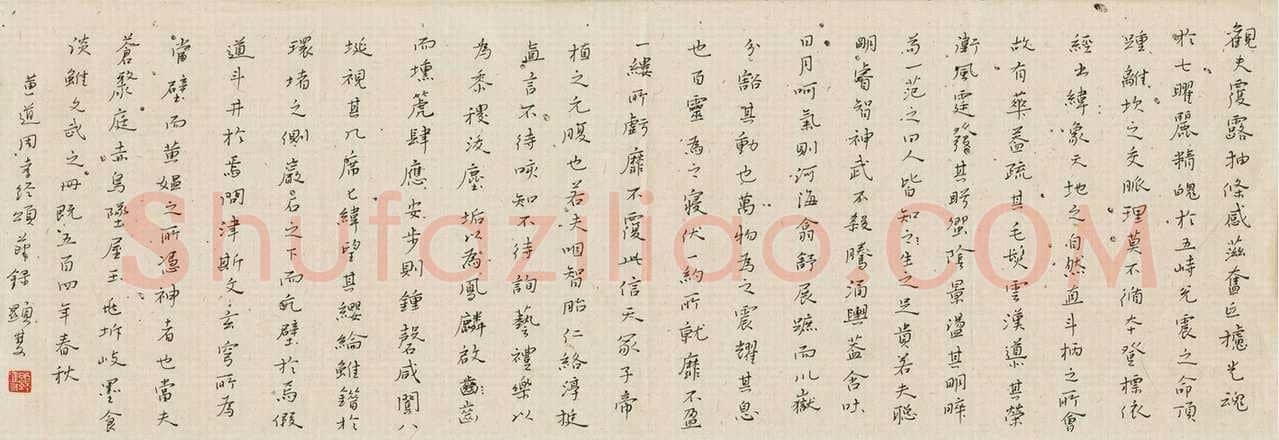 觀夫覆露抽條感滋奮巨櫨光魂
於七曜麗精魄於五峙元震之命頂
踵離坎之交脈理莫不循本登標依
經出緯象天地之自然直斗柄之所會
故有華蓋疏其毛髮雲漢導其榮
衛風霆發其盻蠁陰景盪其明晦
為一范之曰人皆知之生之足貴若夫聡
明睿智神武不殺騰涌輿蓋含吐
日月呵氣則河海翕舒展蹠而川嶽
分豁其動也萬物為之震耀其息
也百靈為之寢伏一約所就靡不盈
一縷所虧靡不覆此信天冢子帝
植之元腹也若夫咽智貽仁絡淳挺
直言不待咳知不待詢藝禮樂以
為黍稷浚塵垢以為鳳麟啟齒
而壎箎肆應安步則鍾磬咸聞八
埏視其几席七緯望其纓綸雖錯於
環堵之側巖石之下而瓦璧於焉假
道斗井於焉問津斯文玄穹所為
當璧而黄媼之所憑神者也當夫
蒼聚庭赤烏墜屋玉兆坼岐墨食
談雖文武之冊既五百四年春秋
黄道周孝經頌 節錄 顯
Shufaziliao.COM